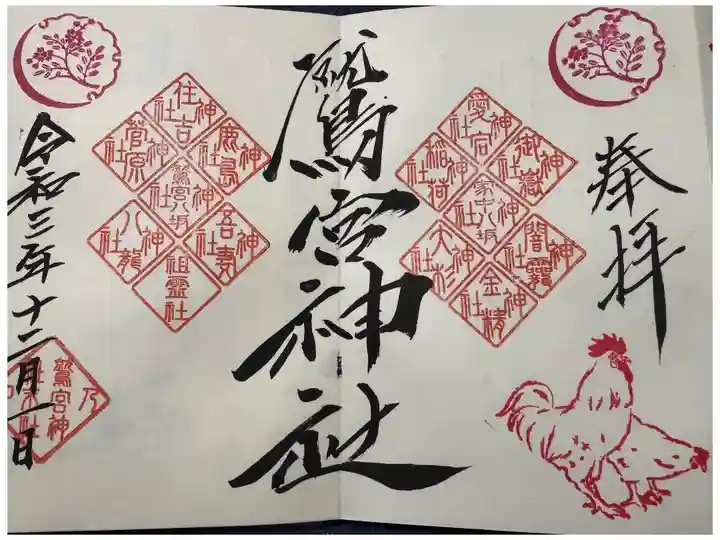 奉拝
愛宕神社
御嶽神社
稲荷神社
家中八坂神社
闇龗神社
大杉神社
金精神社
鷲宮神社
住吉神社
鹿島神社
菅原神社
鷲宮八坂神社
吾妻神社
八龍神社
祖霊社
令和三年十二月一日
乃
鷲宮神